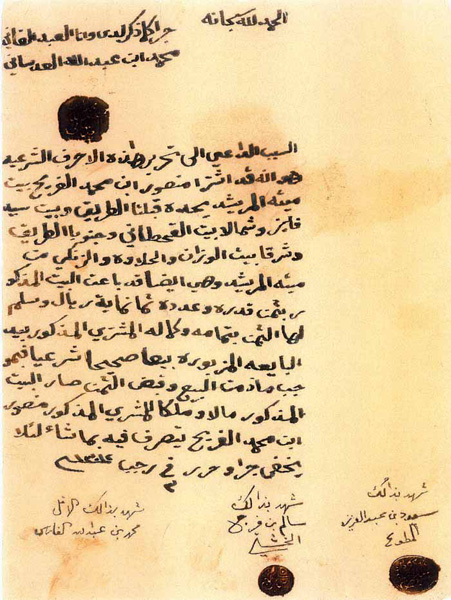 الحمد لله سبحانه
جرا كما ذكر لدي وانا العبد الفاني
محمد ابن عبد الله العدساني
السبب الداعي الى تحرير هذه الاحرف الشرعيه
هو انه قد اشترا منصور ابن محمد الفريح بيت
ميثه المريشد يحده قبلتا الطريق وبيت سيد
فايز وشمالا بيت القحطاني وجنوبا الطريق
وشرقا بيت الوزان والجلاوة والزنكي من
ميثه المريشد وهي ايضا قد باعت البيت المذكو
ر بثمن قدره وعدده ثمانمايه ريال وسلم
لها الثمن بتمامه وكماله المشتري المذكور بيد
البايعه المزبوره بيعا صحيحا شرعيا فبمو
جب ما ذا من البيع وقبض الثمن صار البيت
المذكور مالا وملكا للمشتري المذكور منصور
ابن محمد الفريح يتصرف فيه بما شاء لئلا
يخفى جرا وحرر في رجب
شهد بذالك
سعود بن عبد العزيز
المطوع
شهد بذالك
سالم بن فرج
شهد بذالك الاقل
محمد بن عبد الله الفارس